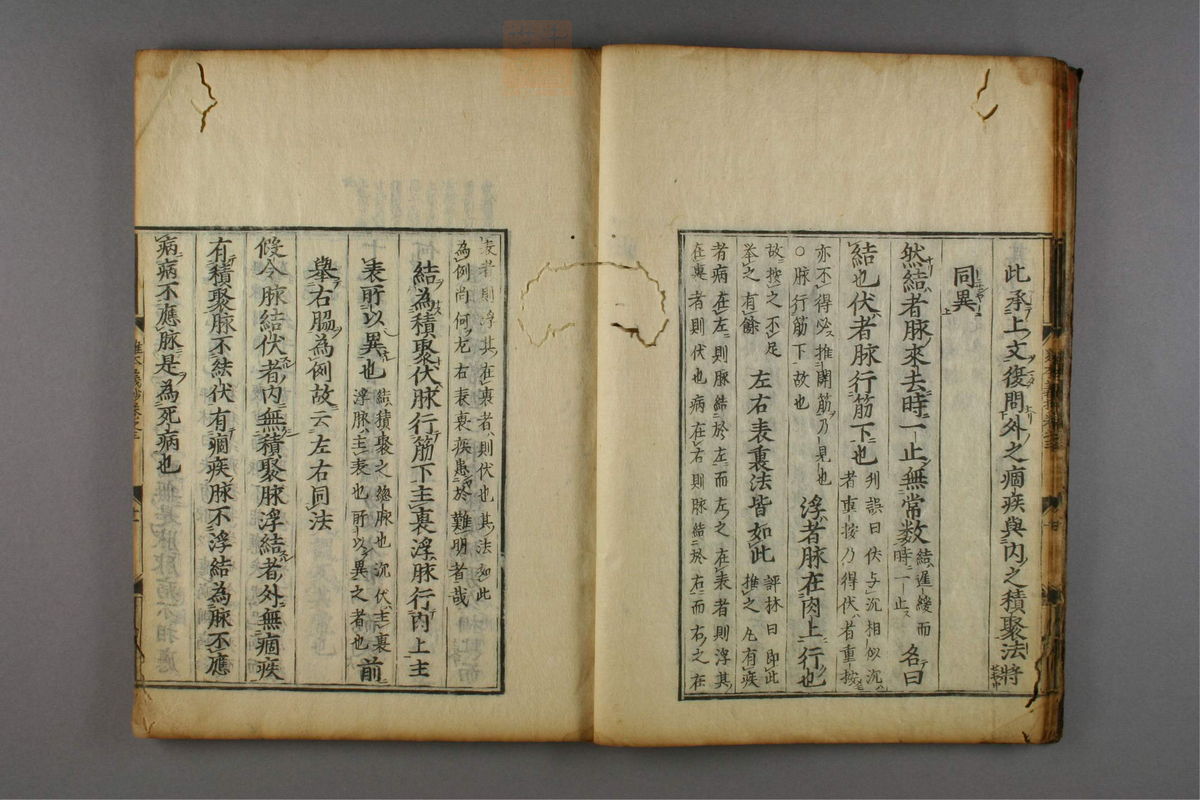 此承上文復問外之痼疾與内之積聚法將
同異
然結者脉來去時一止無常数結遲緩而時一止名曰
結也伏者脉行筋下也刊誤曰伏与沉相似沉者重按乃得伏者重按
亦不得必推開筋乃見也○脉行筋下故也浮者脉在肉上行也
故按之不足举之有餘左右表裏法皆如此評林曰即此推之凡有疾
者病在左則脉結於左而左之在表者則浮其
在裏者則伏也病在右則脉結於右而右之在
表者則浮其在裏者則伏也其法如此
為例尚何左右表裏疾患於難明者哉
結為積聚伏脉行筋下主裏浮脉行肉上主
表所以異也結積聚之總脉也沉伏主裏浮脉主表也所以異之者也前
舉右脇為例故云左右同法
假令脉結伏者内無積聚脉浮結者外無痼疾
有積聚脉不結伏有痼疾脉不浮結為脉不應
病病不應脉是為死病也